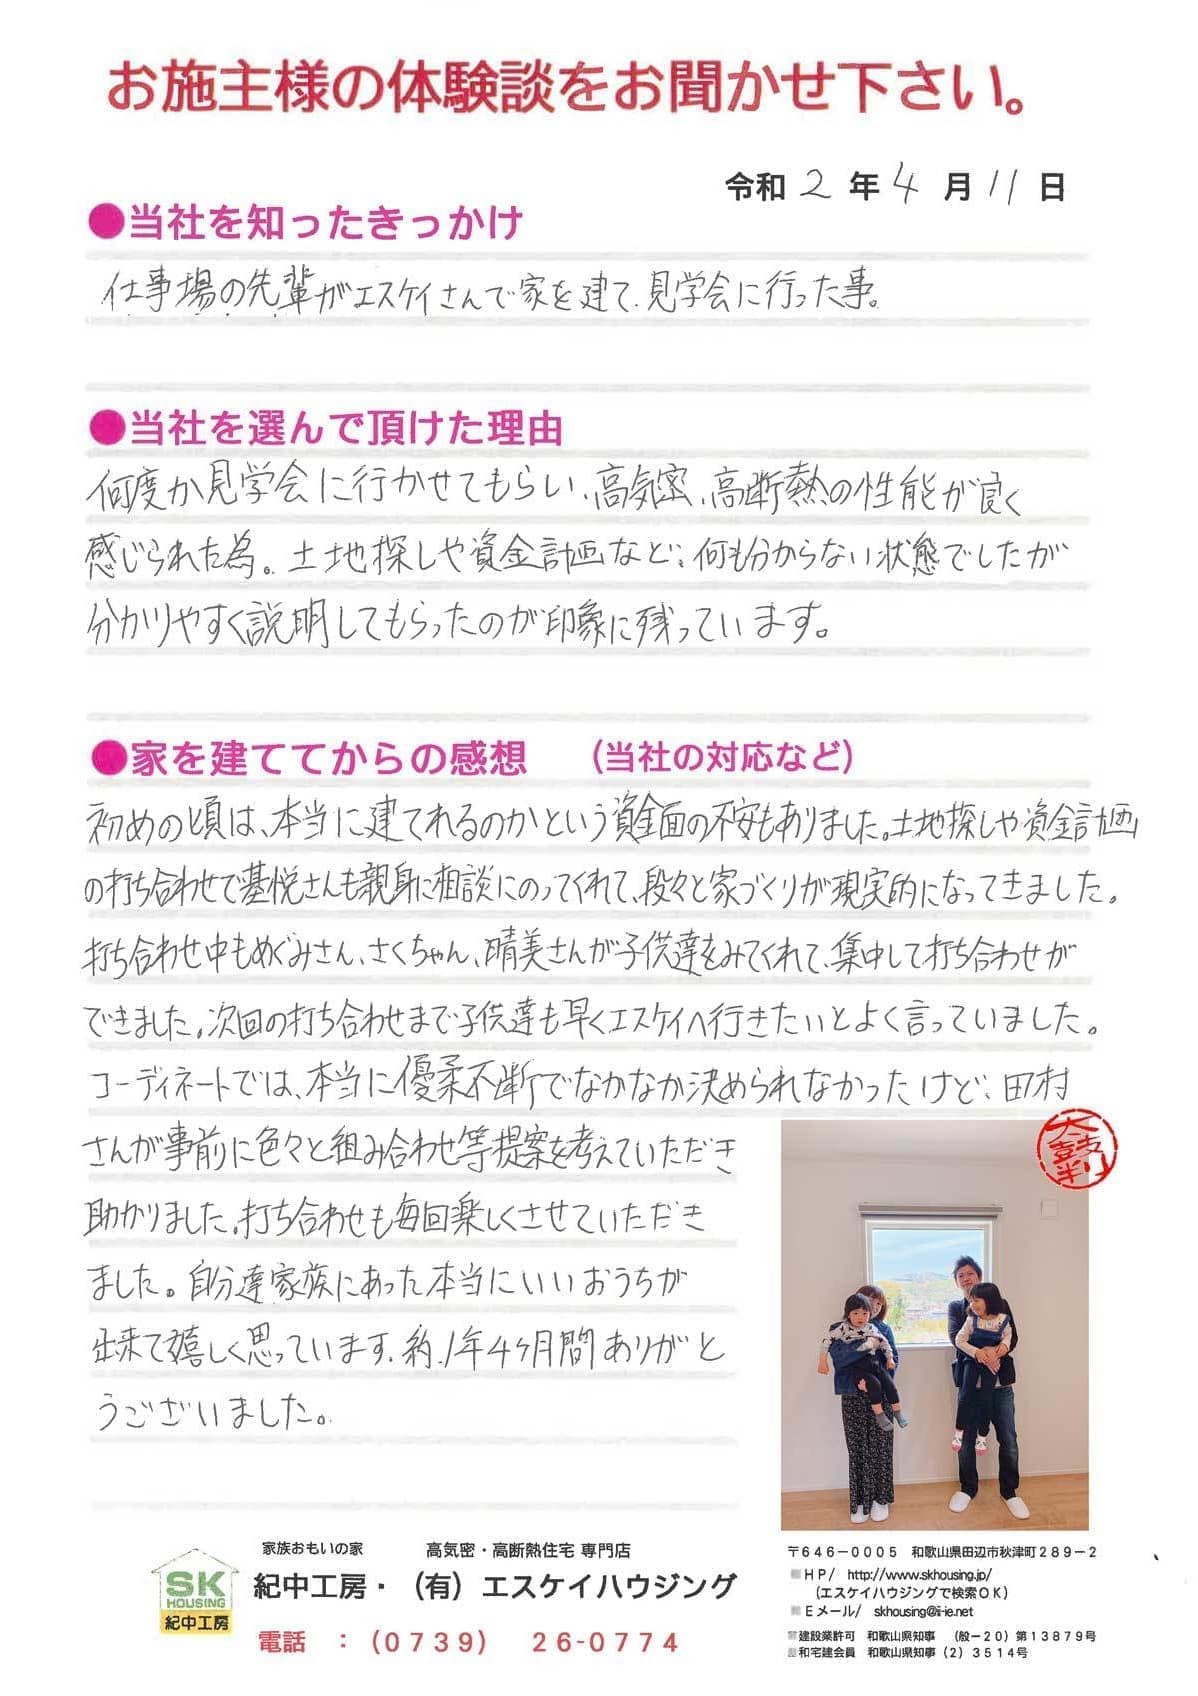 お施主様の体験談をお聞かせ下さい。
令和 2 年 4 月 11 日
●当社を知ったきっかけ
仕事場の先輩がエスケイさんで家を建て、見学会に行った事。
●当社を選んで頂けた理由
何度か見学会に行かせてもらい、高気密、高断熱の性能が良く
感じられた為。土地探しや資金計画など、何も分からない状態でしたが
分かりやすく説明してもらったのが印象に残っています。
●家を建ててからの感想 (当社の対応など)
初めの頃は、本当に建てれるのかという資金面の不安もありました。土地探しや資金計画
の打ち合わせで基悦さんも親身に相談にのってくれて、段々と家づくりが現実的になってきました。
打ち合わせ中もめぐみさん、さくちゃん、晴美さんが子供達をみてくれて、集中して打ち合わせが
できました。次回の打ち合わせまで子供達も早くエスケイへ行きたいとよく言っていました。
コーディネートでは、本当に優柔不断でなかなか決められなかったけど、田村
さんが事前に色々と組み合わせ等提案を考えていただき
助かりました。打ち合わせも毎回楽しくさせていただき
ました。自分達家族にあった本当にいいおうちが
出来て嬉しく思っています。約、1年4ヶ月間ありがと
うございました。
太鼓判
SK
HOUSING
紀中工房
家族おもいの家 高気密・高断熱住宅 専門店
紀中工房・(有)エスケイハウジング
電話 : (0739) 26-0774
〒646-0005 和歌山県田辺市秋津町289-2
HP/ http://www.skhousing.jp/
(エスケイハウジングで検索OK)
Eメール/ skhousing@i-ie.net
建設業許可 和歌山県知事 (般-20)第13879号
和宅建会員 和歌山県知事(2)3514号